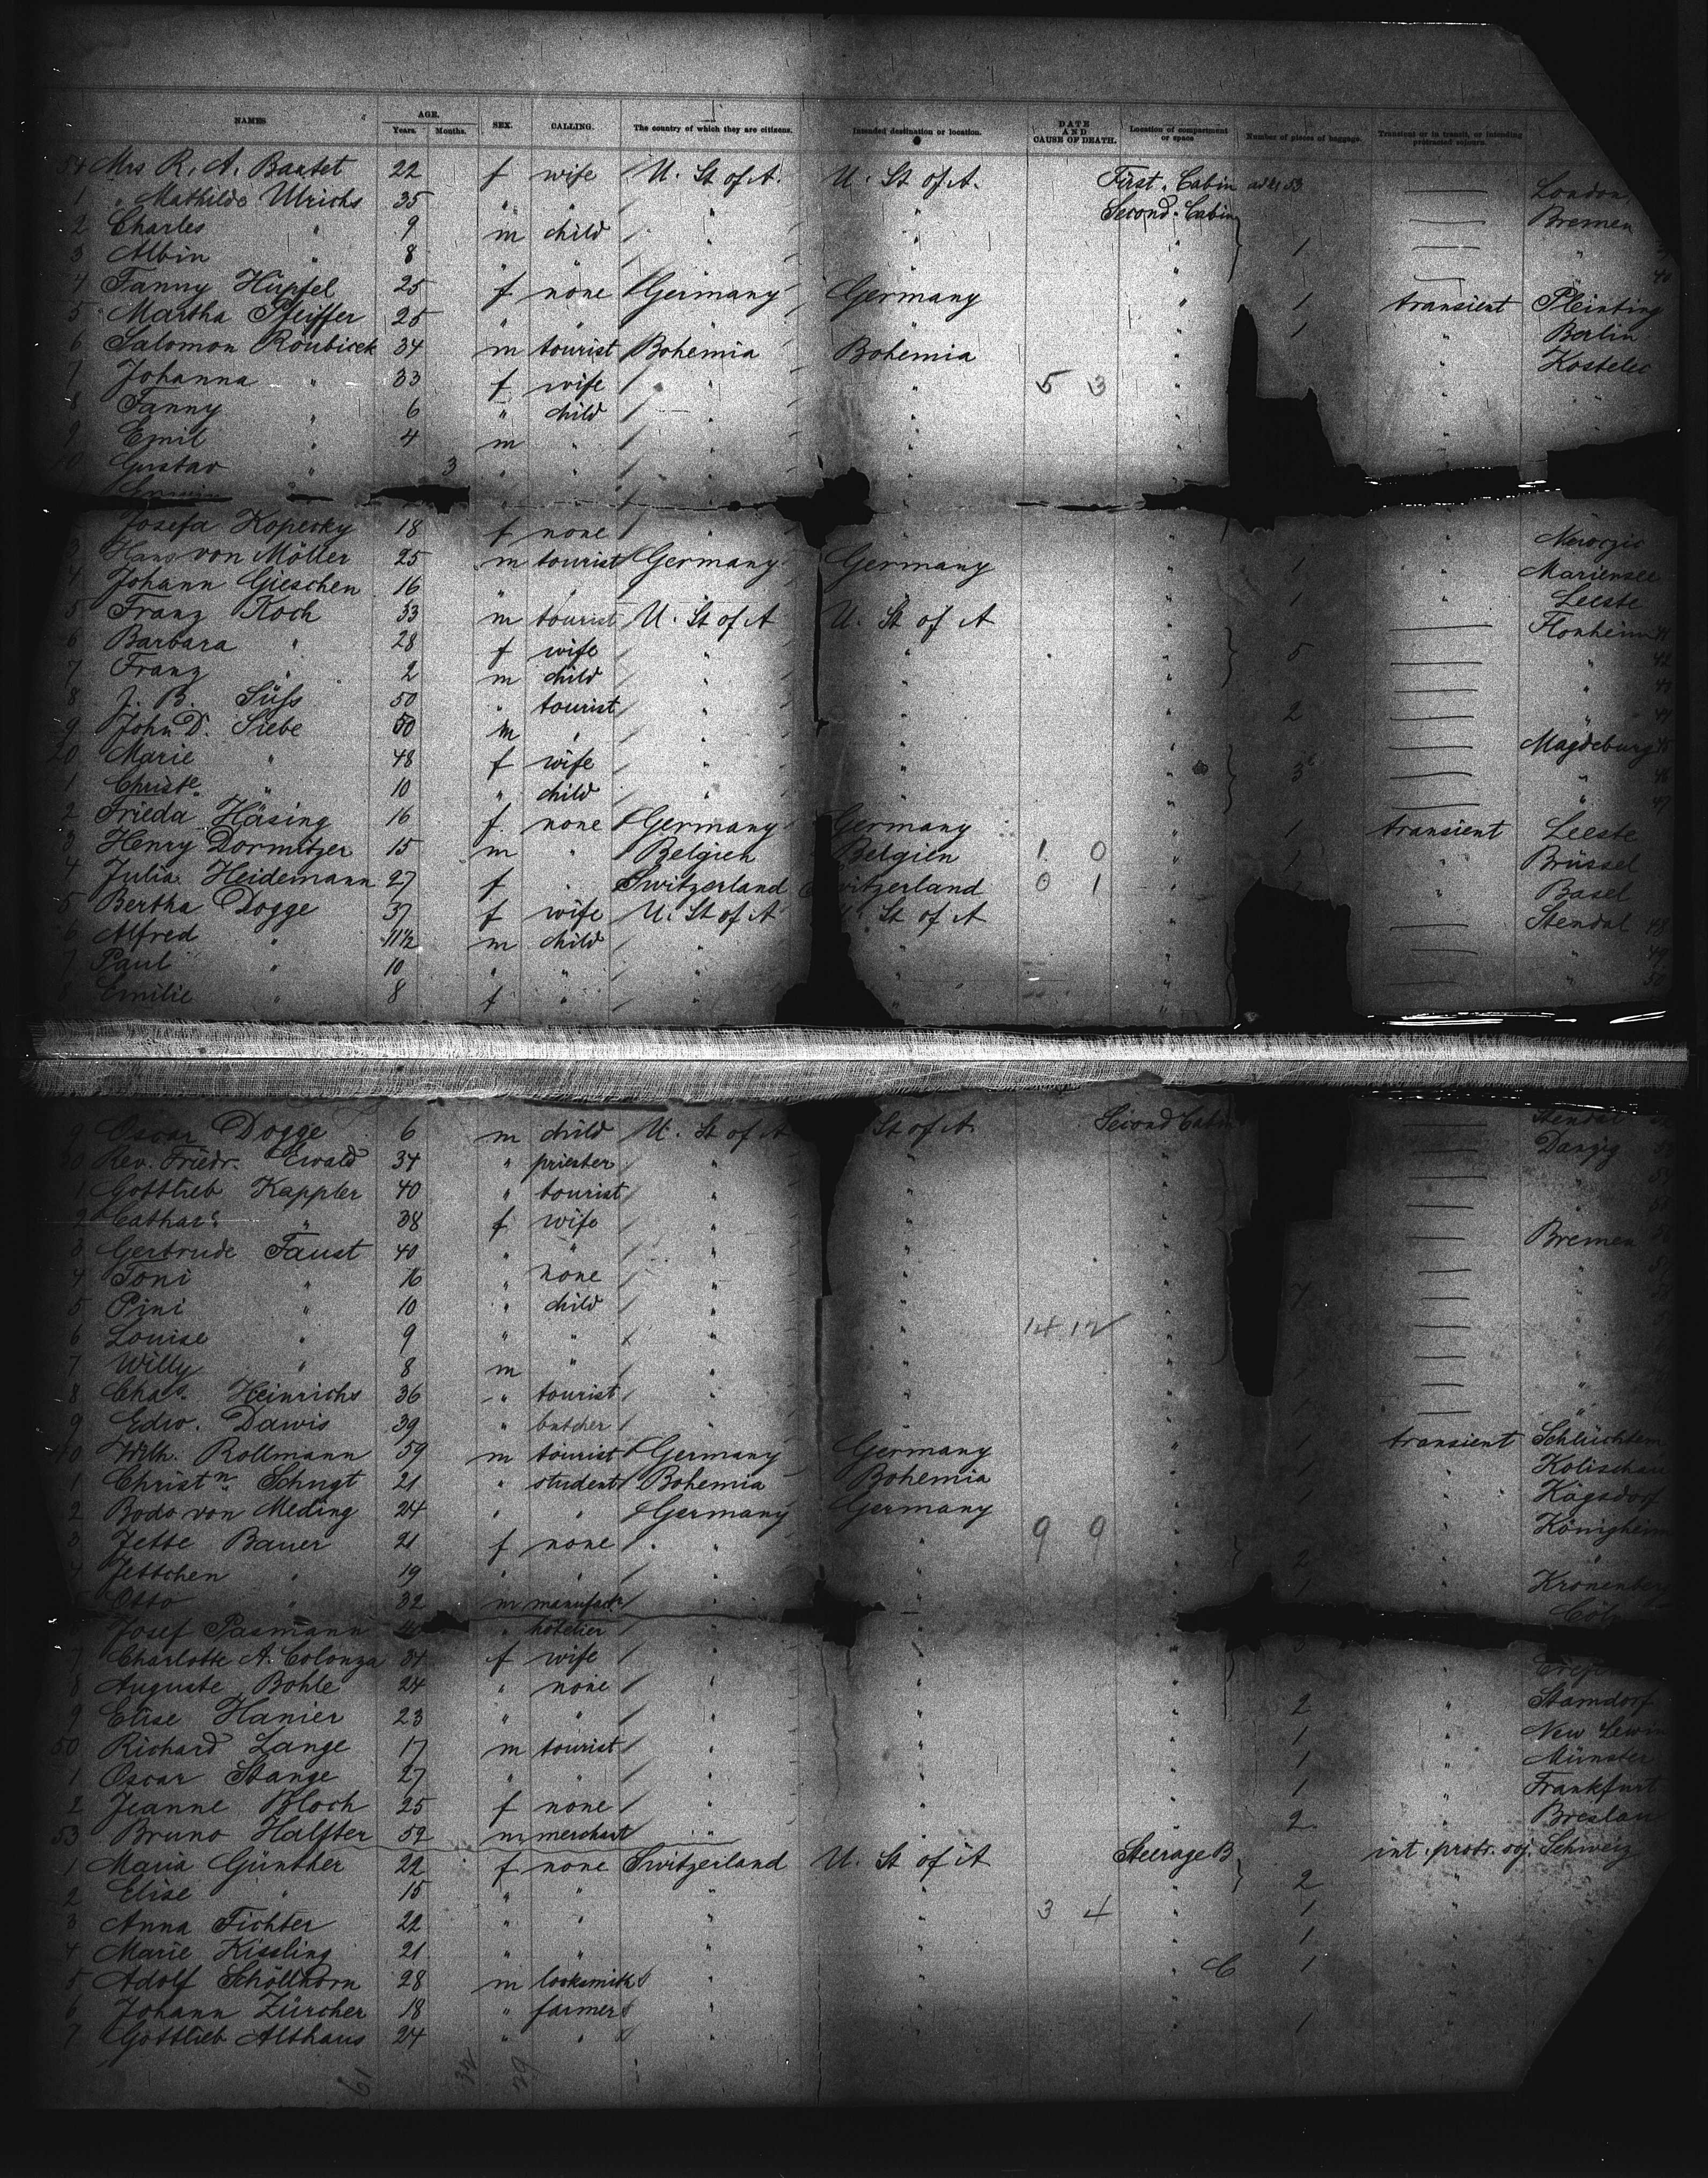 NAMES AGE. Years. Months. SEX. CALLING. The country of which they are citizens. Intended destination or location. DATE AND CAUSE OF DEATH. Location of compartment or space Number of pieces of baggage. Transient or in transit, or intending protracted sojourn.
54 Mrs R. A. Bartet 22 f wife U. St of A. U. St of A. First Cabin — London
1 " Mathilde Ulrichs 35 " " " " Second Cabin — Bremen
2 Charles " 9 m child " " " 1 — "
3 Albin " 8 " " " " " —
4 Fanny Hüpfel 25 f none Germany Germany " 1 transient Pleinting
5 Martha Pfeiffer 25 " " " " " 1 " Berlin
6 Salomon Roubicek 34 m tourist Bohemia Bohemia " " Kostelec
7 Johanna " 33 f wife " " 5 3 " " "
8 Fanny " 6 " child " " " " "
9 Emil " 4 m " " " " "
10 Gustav " 3 " " " " "
Josefa Kopecky 18 f none " " "
3 Hans von Möller 25 m tourist Germany Germany " 1 " Mariensee
4 Johann Gieschen 16 " " " " " 1 " Leeste
5 Franz Koch 33 m tourist U. St of A U. St of A " — Flonheim 41
6 Barbara " 28 f wife " " " 5 — " 42
7 Franz " 2 m child " " " — " 43
8 J. B. Süss 50 " tourist " " " 2 — " 44
9 John D. Siebe 50 m " " " " — Magdeburg 45
20 Marie " 48 f wife " " " 3 — " 46
1 Christe " 10 " child " " " — " 47
2 Frieda Häsing 16 f. none Germany Germany " 1 transient Leeste
3 Henry Dormitzer 15 m " Belgien Belgien 1 0 " 1 " Brüssel
4 Julia Heidemann 27 f " Switzerland Switzerland 0 1 " " Basel
5 Bertha Dogge 37 f wife U. St of A St of A " — Stendal 48
6 Alfred " 11½ m child " " " — " 49
7 Paul " 10 " " " " " — " 50
8 Emilie " 8 f " " " "
9 Oscar Dogge 6 m child U. St of A St of A. Second Cabin — Stendal
30 Rev. Friedr. Ewald 34 " priester " " " — Danzig
1 Gottlieb Kappler 40 " tourist " " " —
2 Cathar. " 38 f wife " " " —
3 Gertrude Faust 40 " " " " " — Bremen
4 Toni " 16 " none " " " —
5 Pini " 10 " child " " " 7 —
6 Louise " 9 " " " " 14 12 " —
7 Willy " 8 m " " " " —
8 Chas. Heinrichs 36 " tourist " " " — "
9 Edw. Dawis 39 " butcher " " " — "
40 Wilh. Rollmann 59 m tourist Germany Germany " 1 transient Schlüchtern
1 Christn Schugt 21 " student Bohemia Bohemia " 1 " Kolischau
2 Bodo von Meding 24 " " Germany Germany " 1 " Kägsdorf
3 Jette Bauer 21 f none " " 9 9 " 2 " Königheim
4 Jettchen " 19 " " " " " " "
Otto " 32 m manufact. " " " 1 " Kronenberg
Josef Pasmann " hôtelier " " " Cöln
7 Charlotte A. Colonza 34 f wife " " " 3
8 Auguste Bohle 24 " none " " "
9 Elise Hanier 23 " " " " " 2 " Stamdorf
50 Richard Lange 17 m tourist " " " 1 " New Lewin
1 Oscar Stange 27 " " " " " 1 " Münster
2 Jeanne Bloch 25 f none " " " 1 " Frankfurt
53 Bruno Halfter 52 m merchant " " " 2 " Breslau
1 Maria Günther 22 f none Switzerland U. St of A Steerage B int. protr. soj. Schweiz
2 Elise " 15 " " " " " 2 " "
3 Anna Fichter 22 " " " " 3 4 " 1
4 Marie Kissling 21 " " " " " 1
5 Adolf Schöllhorn 28 m locksmith " " " C 1
6 Johann Zürcher 18 " farmer " " "
7 Gottlieb Althaus 24 " " " " " 1
61 32 29